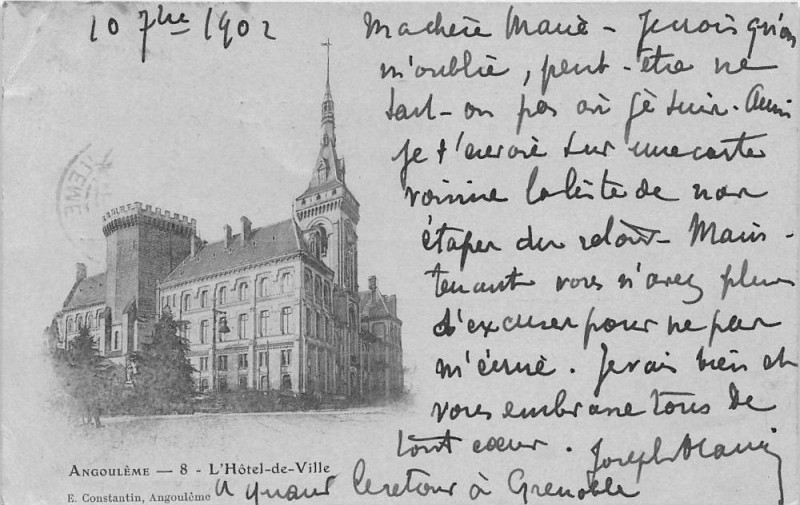 10 7bre 1902
Ma chère Marie - Je vois qu'on
m'oublie, peut-être ne
sait-on pas où je suis. Aussi
je t'envoie sur une carte
voisine la liste de nos
étapes du retour - Main-
tenant vous n'avez plus
d'excuses pour ne pas
m'écrire. Je vais bien et
vous embrasse tous de
tout cœur. Joseph
A quand le retour à Grenoble
ANGOULÊME — 8 - L'Hôtel-de-Ville
E. Constantin, Angoulême